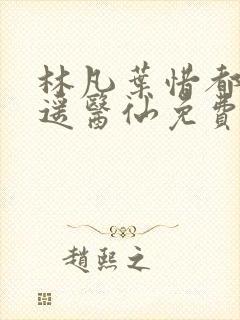 林凡葉惜都
遥醫仙免費
趙熙之